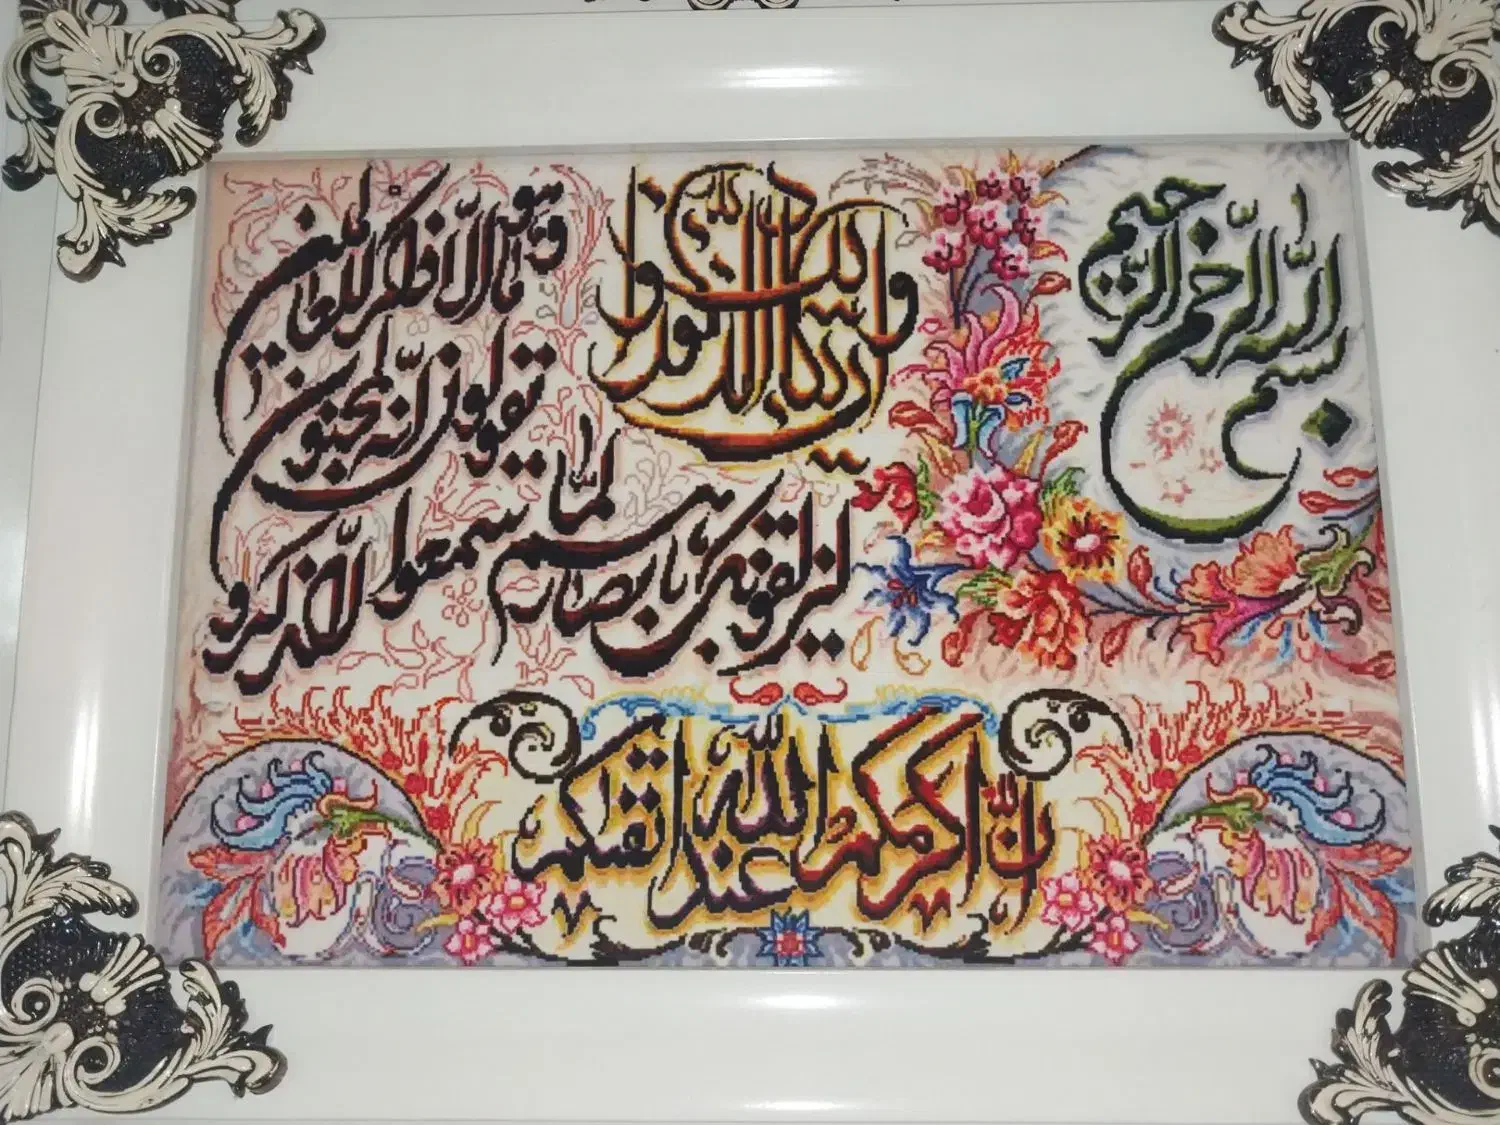 بسم الله الرحمن الرحیم
وان یکاد الذین کفروا
لیزلقونک بابصارهم لما سمعوا الذکر و
یقولون انه لمجنون
وما هو الا ذکر للعالمین
ان اکرمکم عند الله اتقیکم